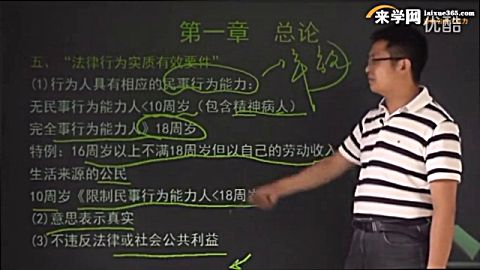 来学网
laixue365.com
优酷
第一章 总论
五、“法律行为实质有效要件”
(1)行为人具有相应的民事行为能力:
无民事行为能力人<10周岁(包含精神病人)
完全事行为能力人》18周岁
特例:16周岁以上不满18周岁但以自己的劳动收入
生活来源的公民
10周岁《限制民事行为能力人<18周岁
(2)意思表示真实
(3)不违反法律或社会公共利益